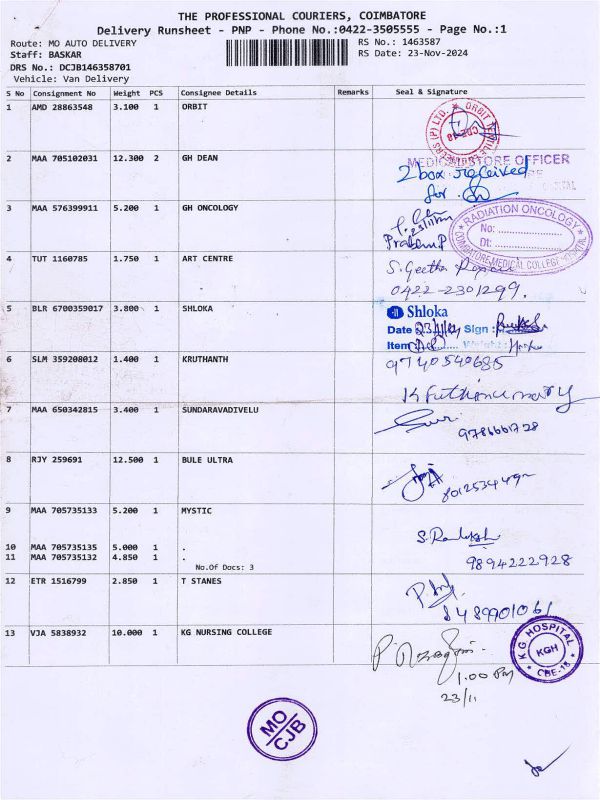 THE PROFESSIONAL COURIERS, COIMBATORE
Delivery Runsheet - PNP - Phone No.:0422-3505555 - Page No.:1
Route: MO AUTO DELIVERY RS No.: 1463587
Staff: BASKAR RS Date: 23-Nov-2024
DRS No.: DCJB146358701
Vehicle: Van Delivery
S No Consignment No Weight PCS Consignee Details Remarks Seal & Signature
1 AMD 28863548 3.100 1 ORBIT
ORBIT
(P) LTD.
2 MAA 705102031 12.300 2 GH DEAN
MEDICAL STORE OFFICER
2 box received
for
3 MAA 576399911 5.200 1 GH ONCOLOGY
RADIATION ONCOLOGY
No: ..............
Dt: ..............
COIMBATORE MEDICAL COLLEGE HOSPITAL
4 TUT 1160785 1.750 1 ART CENTRE
S. Geetha
0422-2301299.
5 BLR 6700359017 3.800 1 SHLOKA
Shloka
Date 23/11/24 Sign :
Item Weight :
6 SLM 359208012 1.400 1 KRUTHANTH
9740540685
7 MAA 650342815 3.400 1 SUNDARAVADIVELU
9786661728
8 RJY 259691 12.500 1 BULE ULTRA
9 MAA 705735133 5.200 1 MYSTIC
10 MAA 705735135 5.000 1 .
11 MAA 705735132 4.850 1 .
No.Of Docs: 3
9894222928
12 ETR 1516799 2.850 1 T STANES
8489901061
13 VJA 5838932 10.000 1 KG NURSING COLLEGE
KG HOSPITAL
KGH
CBE-18
1.00 PM
23/11
MO
CJB